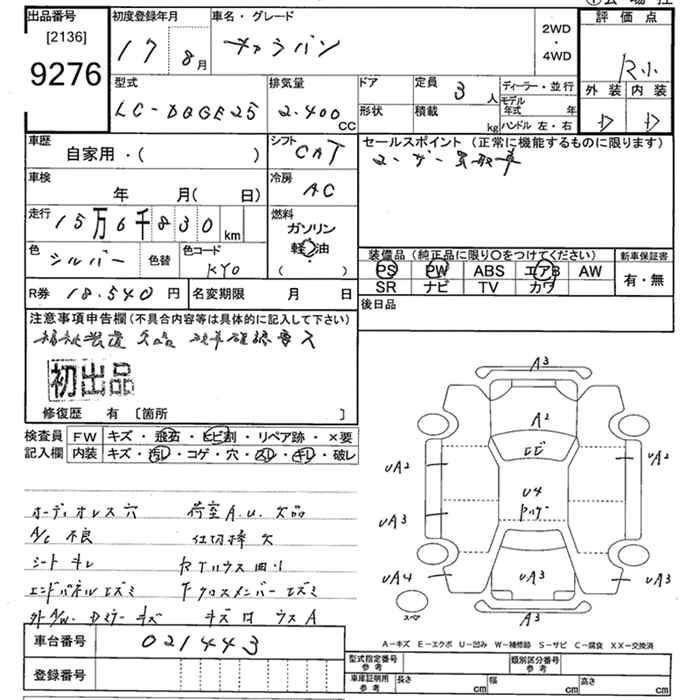 出品番号 初度登録年月 車名・グレード 評価点
[2136]
9276
17 8月 キャラバン 2WD・4WD
R小
型式 排気量 ドア 定員 3人 ディーラー・並行 外装 内装
2.400 CC 形状 積載 kg モデル年式 年 D D
ハンドル 左・右
車歴 シフト CAT セールスポイント (正常に機能するものに限ります)
自家用・( ) ユーザー買取車
車検 年 月(日) 冷房 AC
走行 15万6千830km 燃料 ガソリン
軽油
( )
色 シルバー 色替 色コード KY0
装備品(純正品に限り○をつけてください) 新車保証書
PS PW ABS エアB AW 有・無
SR ナビ TV カワ
R券 18.540円 名変期限 月 日 後日品
注意事項申告欄(不具合内容等は具体的に記入して下さい)
初出品
修復歴 有 [箇所 ]
検査員記入欄 FW キズ・飛石・ヒビ割・リペア跡・×要
内装 キズ・汚レ・コゲ・穴・スレ・キレ・破レ
オーディオレス穴 荷室A.U.欠品
A/C 不良
シートキレ
エンドパネルエズミ 下クロスメンバーエズミ
A3
A2
ヒビ
UA2 UA2
U4
UA3
UA4 UA3 UA3
スペア A3
A-キズ E-エクボ U-凹み W-補修跡 S-サビ C-腐食 XX-交換済
車台番号 021443
型式指定番号参考 類別区分番号参考
登録番号 車庫証明用参考 長さ cm 幅 cm 高さ cm